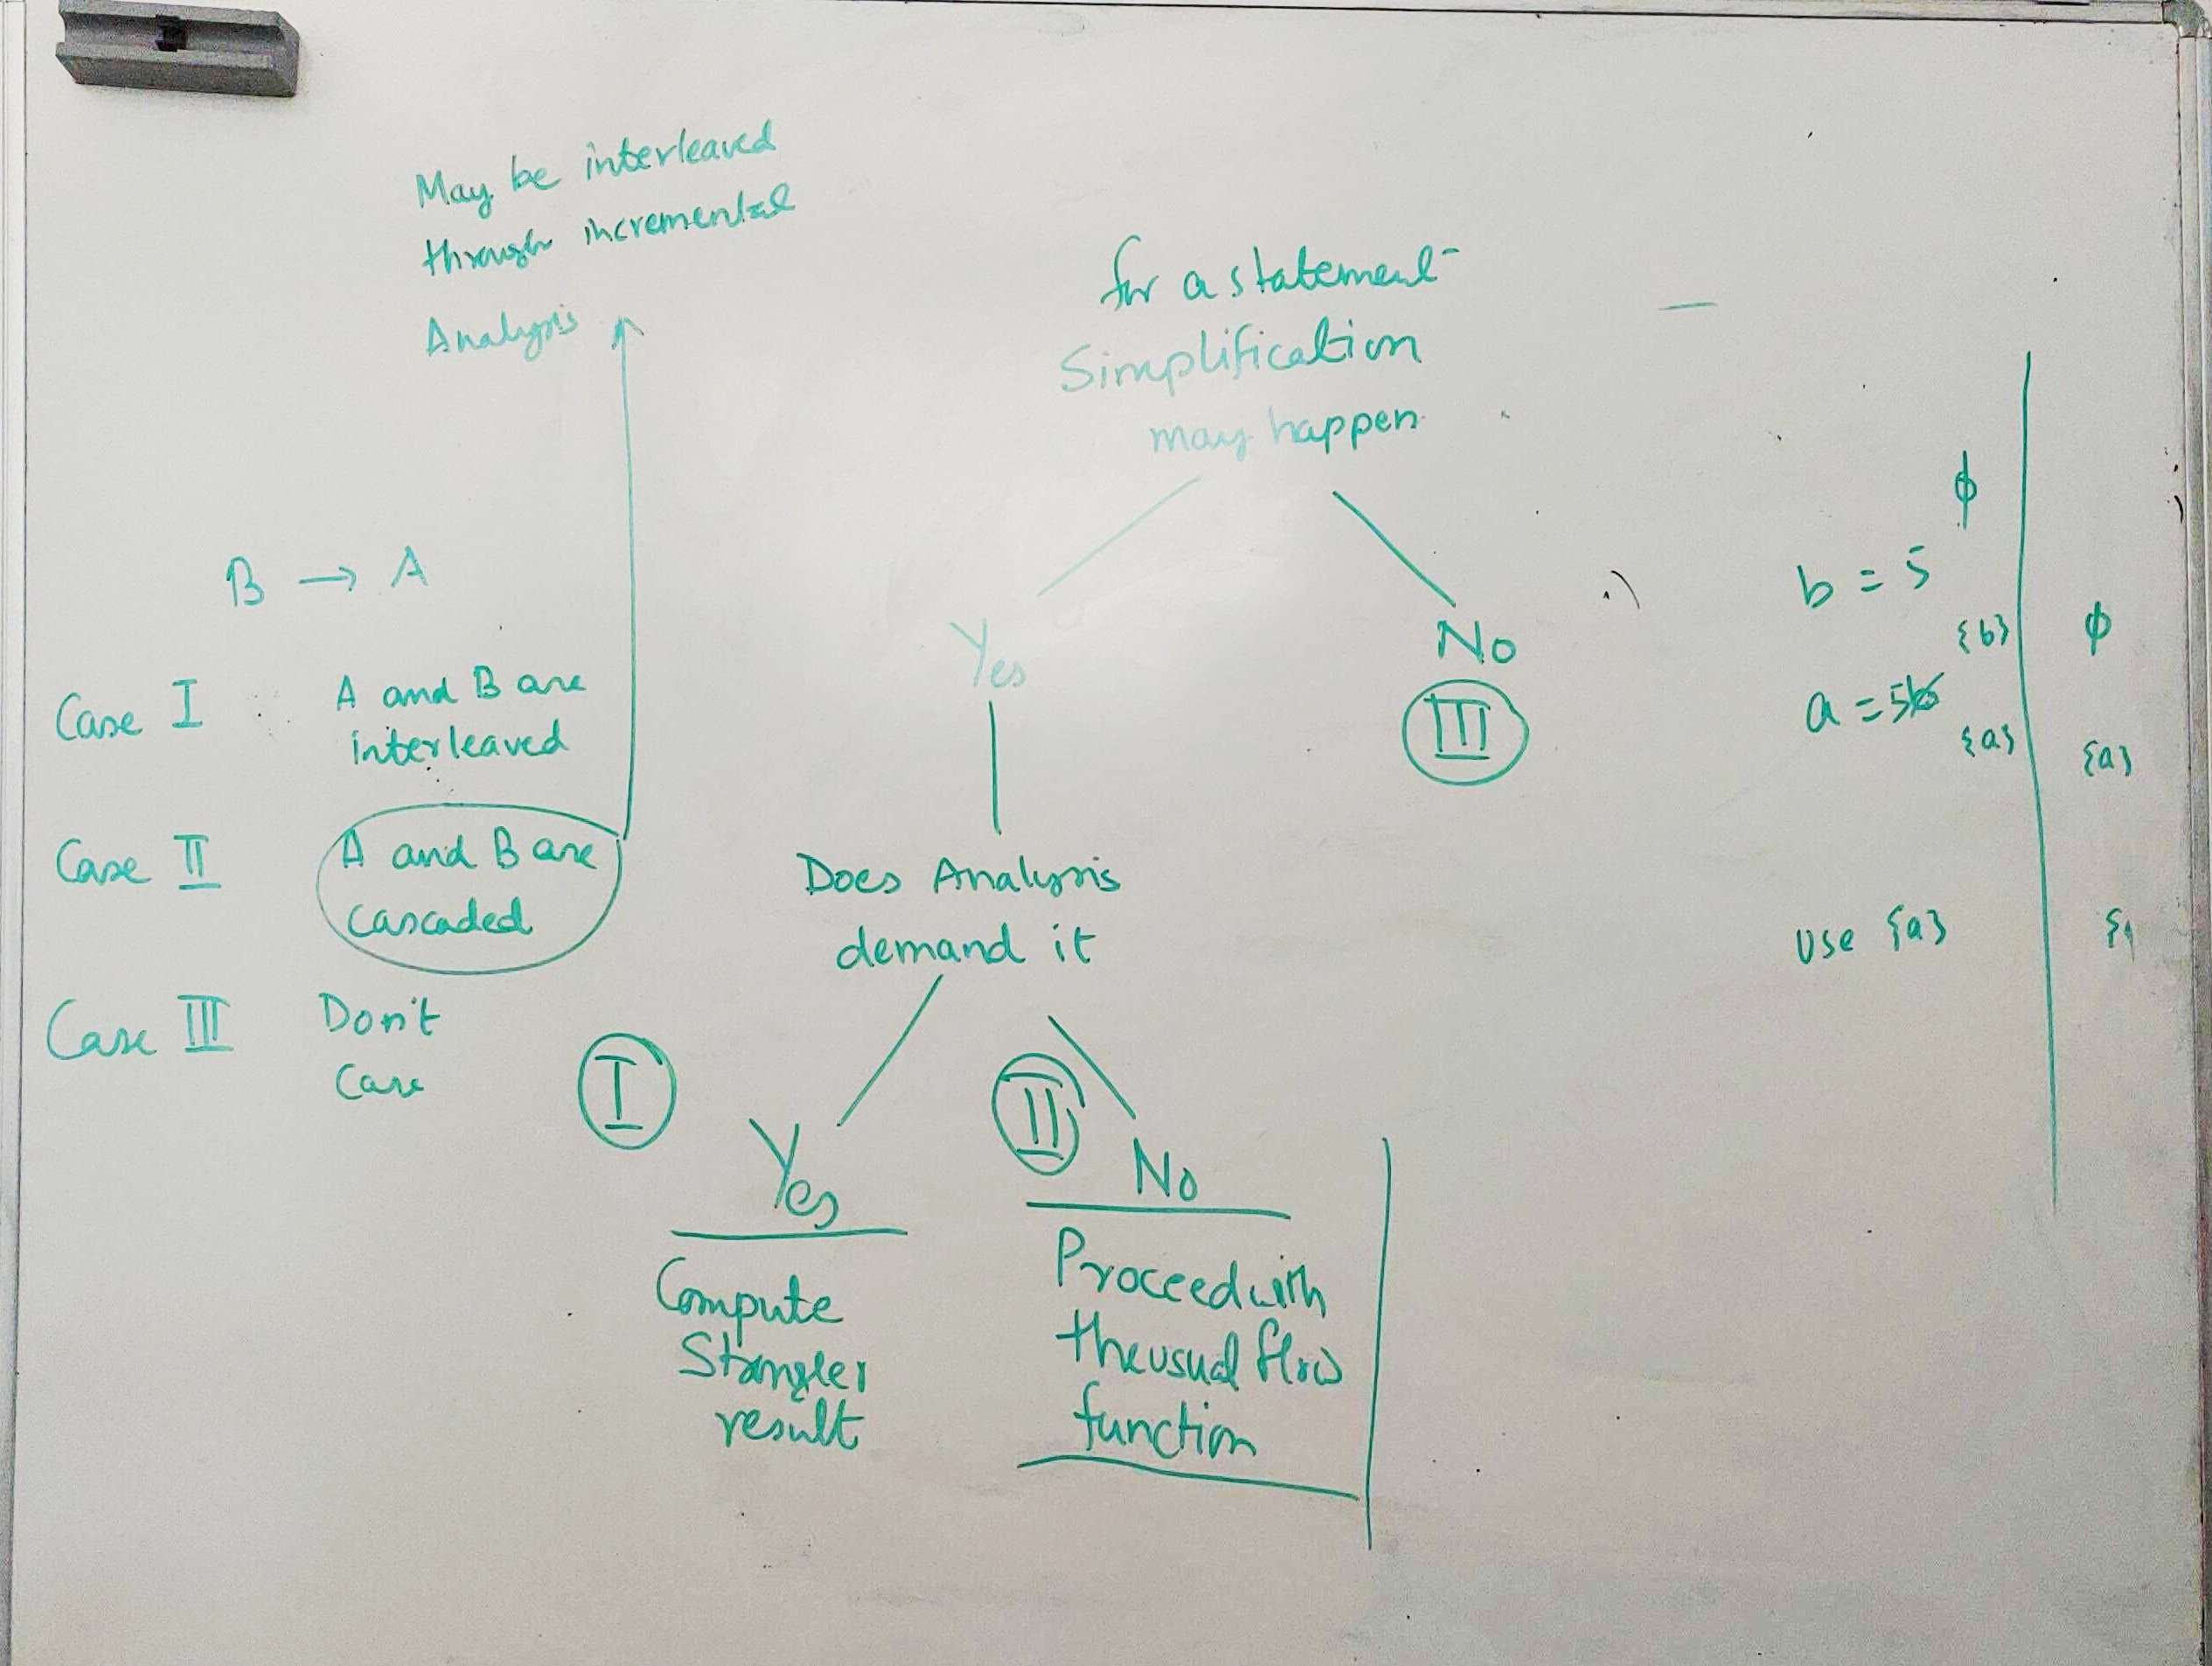 May be interleaved
through incremental
Analysis
B → A
Case I A and B are
interleaved
Case II A and B are
cascaded
Case III Don't
Care
for a statement
Simplification
may happen
Yes
No
III
Does Analysis
demand it
I
Yes
II
No
Compute
result
Proceed with
the usual flow
function
ϕ
b = 5
{b} ϕ
a = 5b
{a} {a}
use {a}